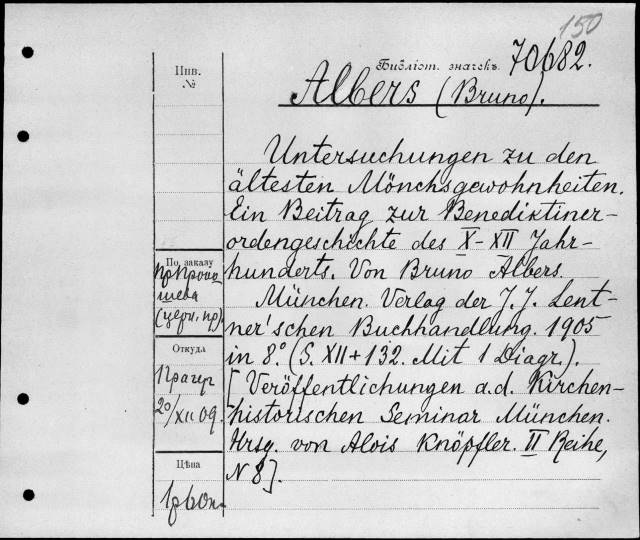 150
Библіот. значекъ 70682.
Albers (Bruno).
Untersuchungen zu den
ältesten Mönchsgewohnheiten.
Ein Beitrag zur Benediktiner-
ordengeschichte des X-XII Jahr-
hunderts. Von Bruno Albers.
München. Verlag der J. J. Lent-
ner'schen Buchhandlung. 1905
in 8.° (S. XII + 132. Mit 1 Diagr.).
[Veröffentlichungen a.d. Kirchen-
historischen Seminar München.
Hrsg. von Alois Knöpfler. II Reihe,
N 8].
Инв.
№
По заказу
(церк. пр).
Откуда
Прагер
20/XII 09.
Цѣна
1р60к.